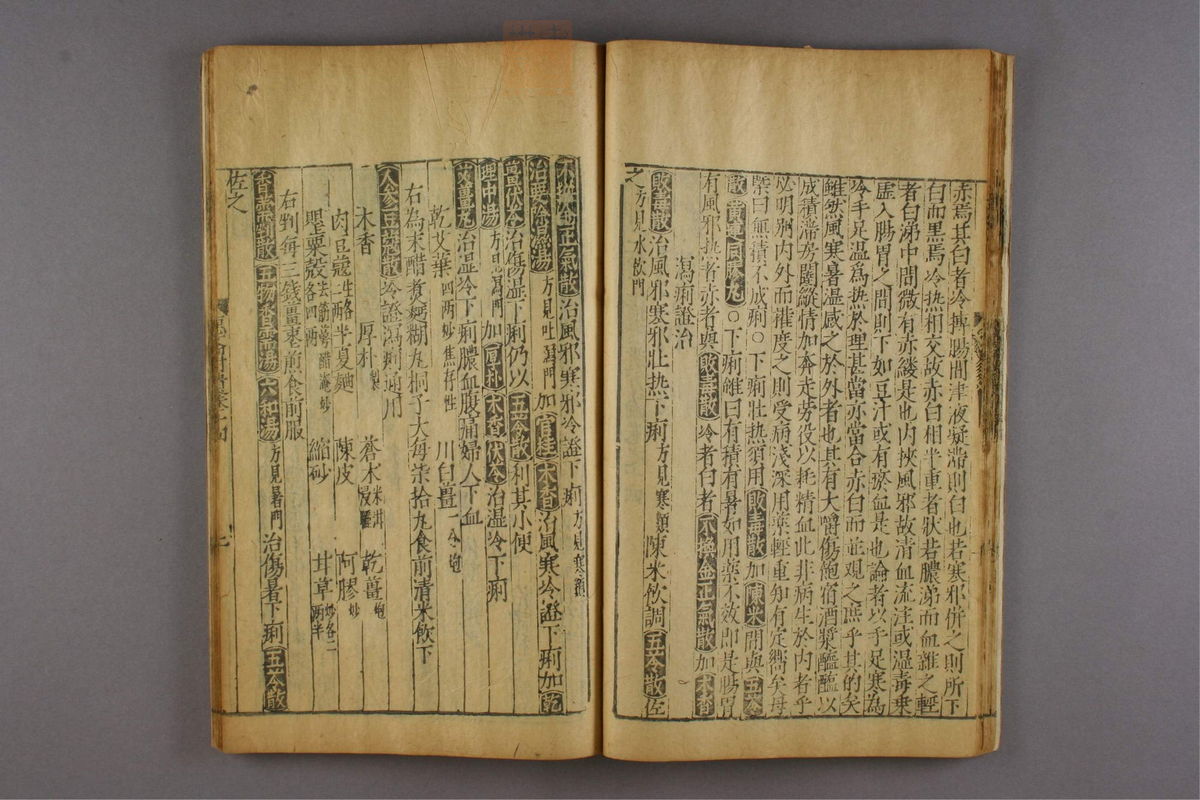 赤焉其白者冷搏腸間津液凝滯則白也若寒邪併之則所下
白而黑焉冷热相交故赤白相半重者狀若膿涕而血雜之輕
者白涕中間微有赤縷是也内挾風邪故清血流注或湿毒乗
虚入腸胃之間則下如豆汁或有瘀血是也論者以手足寒為
冷手足温爲热於理甚當亦當合赤白而並观之庶乎其的矣
雖然風寒暑湿感之於外者也其有大嚼傷飽宿酒漿醯醢以
成積滯房闥縱情加奔走勞役以耗精血此非病生於内者乎
必明别内外而權度之則受病淺深用藥輕重知有定嚮矣毋
槩曰無積不成痢○下痢壯热須用敗毒散加陳米間與五苓
散黄連阿膠丸○下痢雖曰有積有暑如用藥不效即是腸胃
有風邪热者赤者與敗毒散冷者白者不換金正氣散加木香
瀉痢證治
敗毒散治風邪寒邪壯热下痢方見寒類陳米飲調五苓散佐
之方見水飲門
不換金正氣散治風邪寒邪冷證下痢方見寒類
治要冷湿湯方見吐瀉門加官桂木香治風寒冷證下痢加乾
薑茯苓治傷湿下痢仍以五苓散利其小便
理中湯方見瀉門加厚朴木香茯苓治湿冷下痢
艾薑丸治湿冷下痢膿血腹痛婦人下血
乾艾葉四两炒焦存性 川白薑一今炮
右為末醋煮麵糊丸桐子大每柒拾丸食前清米飲下
人參豆蔻散冷證瀉痢通用
木香 厚朴製 蒼木米泔浸 乾薑炮
肉豆蔻生各一两 半夏麯 陳皮 阿膠炒
罌粟殻去筋萼醋淹炒各四两 縮砂 甘草炒各二两半
右剉每三錢薑棗煎食前服
香薷剉散五物香薷湯六和湯方見暑門治傷暑下痢五苓散
佐之